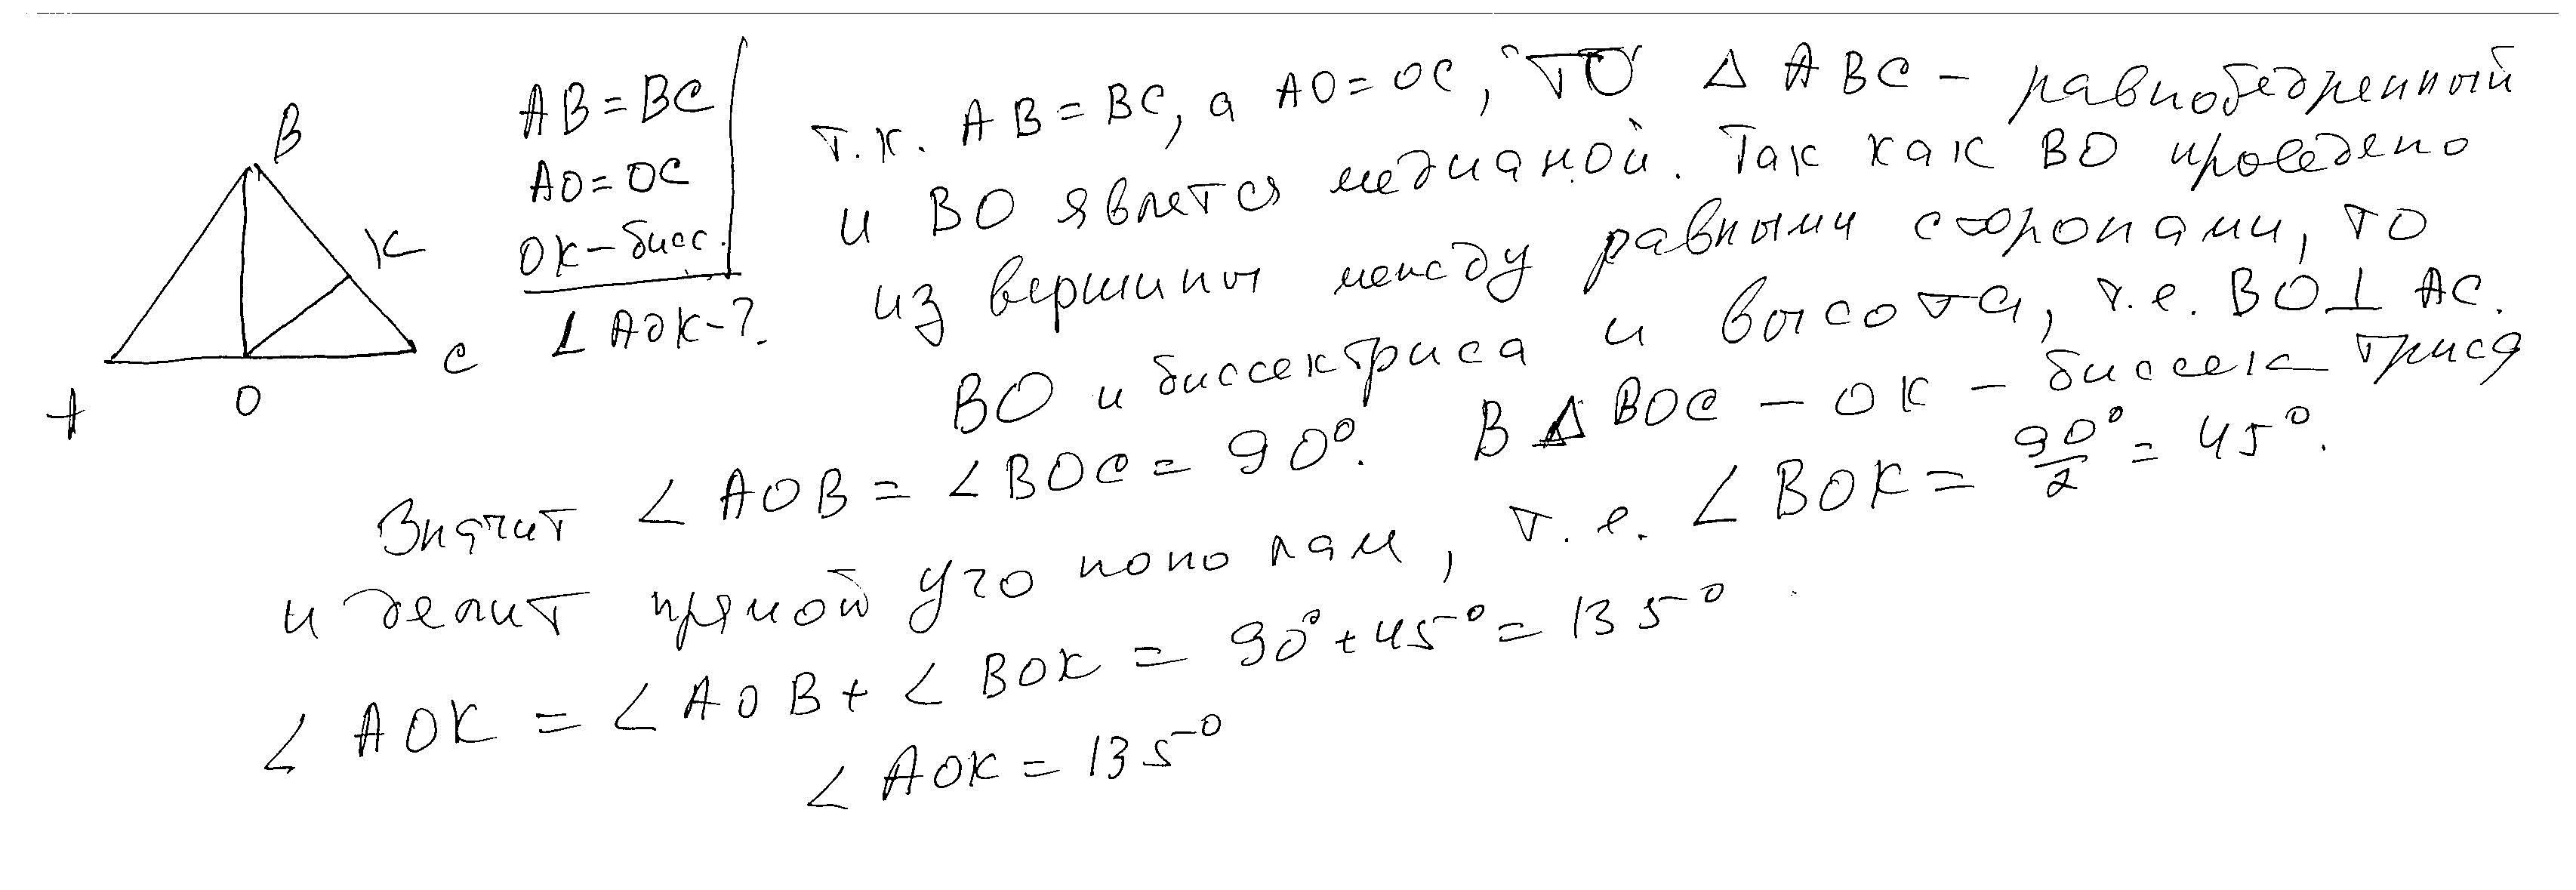 B
K
A
O
C
AB = BC
AO = OC
OK – бисс.
∠ AOK – ?
т.к. AB = BC, а AO = OC, ТО Δ ABC – равнобедренный
и BO явлется медианой. Так как BO проведено
из вершины между равными сторонами, то
BO и биссектриса и высота, т.е. BO ⊥ AC.
Значит ∠ AOB = ∠ BOC = 90°. В Δ BOC – OK – биссектриса
и делит прямой уго пополам, т.е. ∠ BOK = 90°/2 = 45°.
∠ AOK = ∠ AOB + ∠ BOK = 90° + 45° = 135°
∠ AOK = 135°